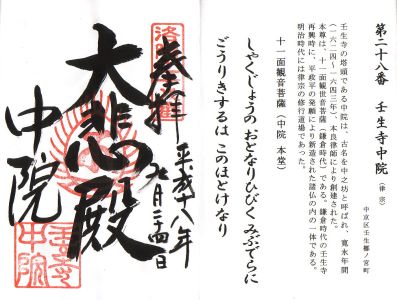 第二十八番 壬生寺中院（律宗）
中京区壬生梛ノ宮町
壬生寺の塔頭である中院は、古名を中之坊と呼ばれ、寛永年間
（一六二四～一六四三年）本良律師により創建された。
本尊は、十一面観世音菩薩（鎌倉時代）である。鎌倉時代の壬生寺
再興時に、平政平の発願により新造された諸仏の内の一体である。
明治時代には律宗の修行道場であった。
十一面観音菩薩（中院 本堂）
しゃくじょうの おとなりひびく みぶでらに
ごうりきするは このほとけなり
奉拝
平成十八年
七月二十四日
大悲殿
中院